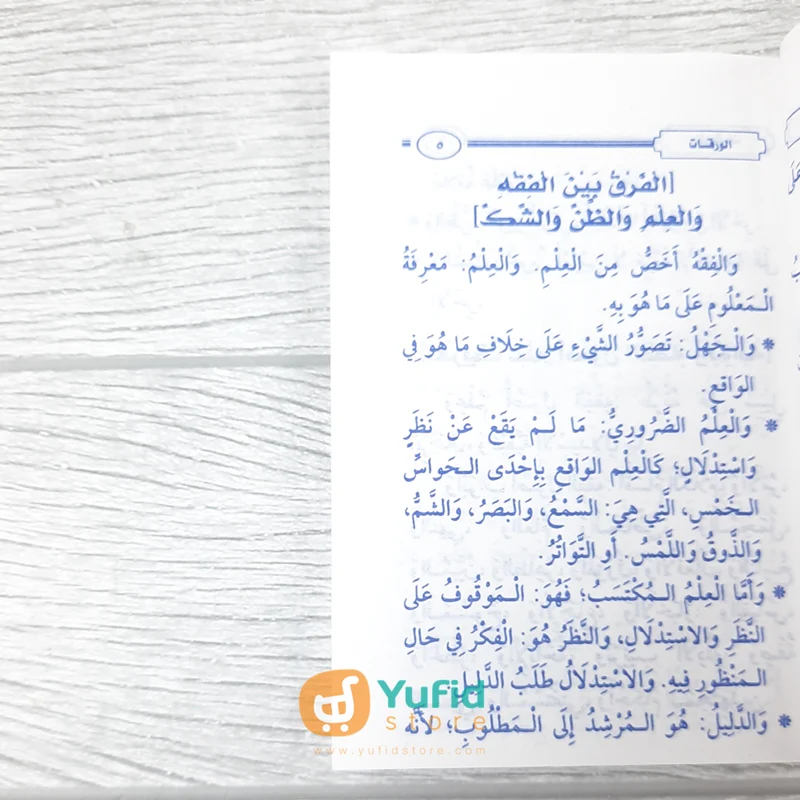 الورقات
٥
[الْفَرْقُ بَيْنَ الْفِقْهِ
وَالْعِلْمِ وَالظَّنِّ وَالشَّكِّ]
وَالْفِقْهُ أَخَصُّ مِنَ الْعِلْمِ. وَالْعِلْمُ: مَعْرِفَةُ
الْـمَعْلُومِ عَلَى مَا هُوَ بِهِ.
* وَالْـجَهْلُ: تَصَوُّرُ الشَّيْءِ عَلَى خِلَافِ مَا هُوَ فِي
الوَاقِعِ.
* وَالْعِلْمُ الضَّرُورِيُّ: مَا لَـمْ يَقَعْ عَنْ نَظَرٍ
وَاسْتِدْلَالٍ؛ كَالْعِلْمِ الوَاقِعِ بِإِحْدَى الـحَوَاسِّ
الـخَمْسِ، الَّتِي هِيَ: السَّمْعُ، وَالبَصَرُ، وَالشَّمُّ،
وَالذَّوقُ وَاللَّمْسُ. أَوِ التَّوَاتُرُ.
* وَأَمَّا الْعِلْمُ الـمُكْتَسَبُ؛ فَهُوَ: الْـمَوْقُوفُ عَلَى
النَّظَرِ وَالاسْتِدْلَالِ، وَالنَّظَرُ هُوَ: الْفِكْرُ فِي حَالِ
الـمَنْظُورِ فِيهِ. وَالاسْتِدْلَالُ طَلَبُ الدَّلِيلِ.
* وَالدَّلِيلُ: هُوَ الـمُرْشِدُ إِلَى الْـمَطْلُوبِ؛ لأَنَّهُ
Yufid
store
www.yufidstore.com